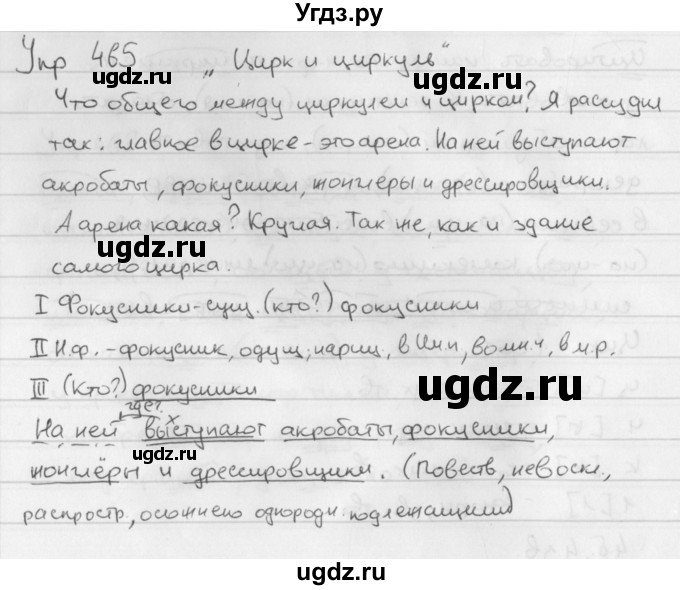 Угдз.ру
Упр 465 „Цирк и циркуль“
Что общего между циркулем и цирком? Я рассудил
так: главное в цирке - это арена. На ней выступают
акробаты, фокусники, жонглёры и дрессировщики.
А арена какая? Круглая. Так же, как и здание
самого цирка.
I Фокусники-сущ. (кто?) фокусники
II Н.ф. - фокусник, одуш, нариц, в И.п, во мн.ч, в м.р.
III (Кто?) фокусники
где?
х
На ней выступают акробаты, фокусники,
жонглёры и дрессировщики. (Повеств, невоскл,
распростр, осложнено однородн. подлежащими)
ugdz.ru
ugdz.ru
ugdz.ru
ugdz.ru
ugdz.ru
ugdz.ru
ugdz.ru